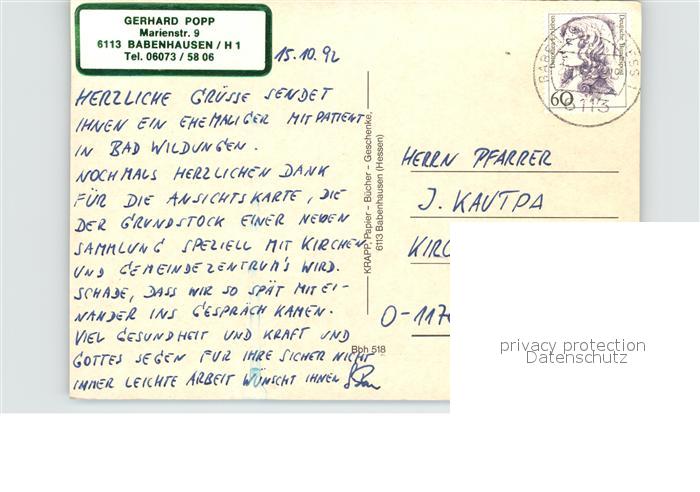 GERHARD POPP
Marienstr. 9
6113 BABENHAUSEN / H 1
Tel. 06073 / 58 06
15.10.92
HERZLICHE GRÜSSE SENDET
IHNEN EIN EHEMALIGER MITPATIENT
IN BAD WILDUNGEN.
NOCHMALS HERZLICHEN DANK
FÜR DIE ANSICHTSKARTE, DIE
DER GRUNDSTOCK EINER NEUEN
SAMMLUNG SPEZIELL MIT KIRCHEN
UND GEMEINDEZENTRUM'S WIRD.
SCHADE, DASS WIR SO SPÄT MITEI-
NANDER INS GESPRÄCH KAMEN.
VIEL GESUNDHEIT UND KRAFT UND
GOTTES SEGEN FÜR IHRE SICHER NICHT
IMMER LEICHTE ARBEIT WÜNSCHT IHNEN
KRAPP, Papier – Bücher – Geschenke,
6113 Babenhausen (Hessen)
Bbh 518
60
6113
HERRN PFARRER
J.
O-117
privacy protection
Datenschutz